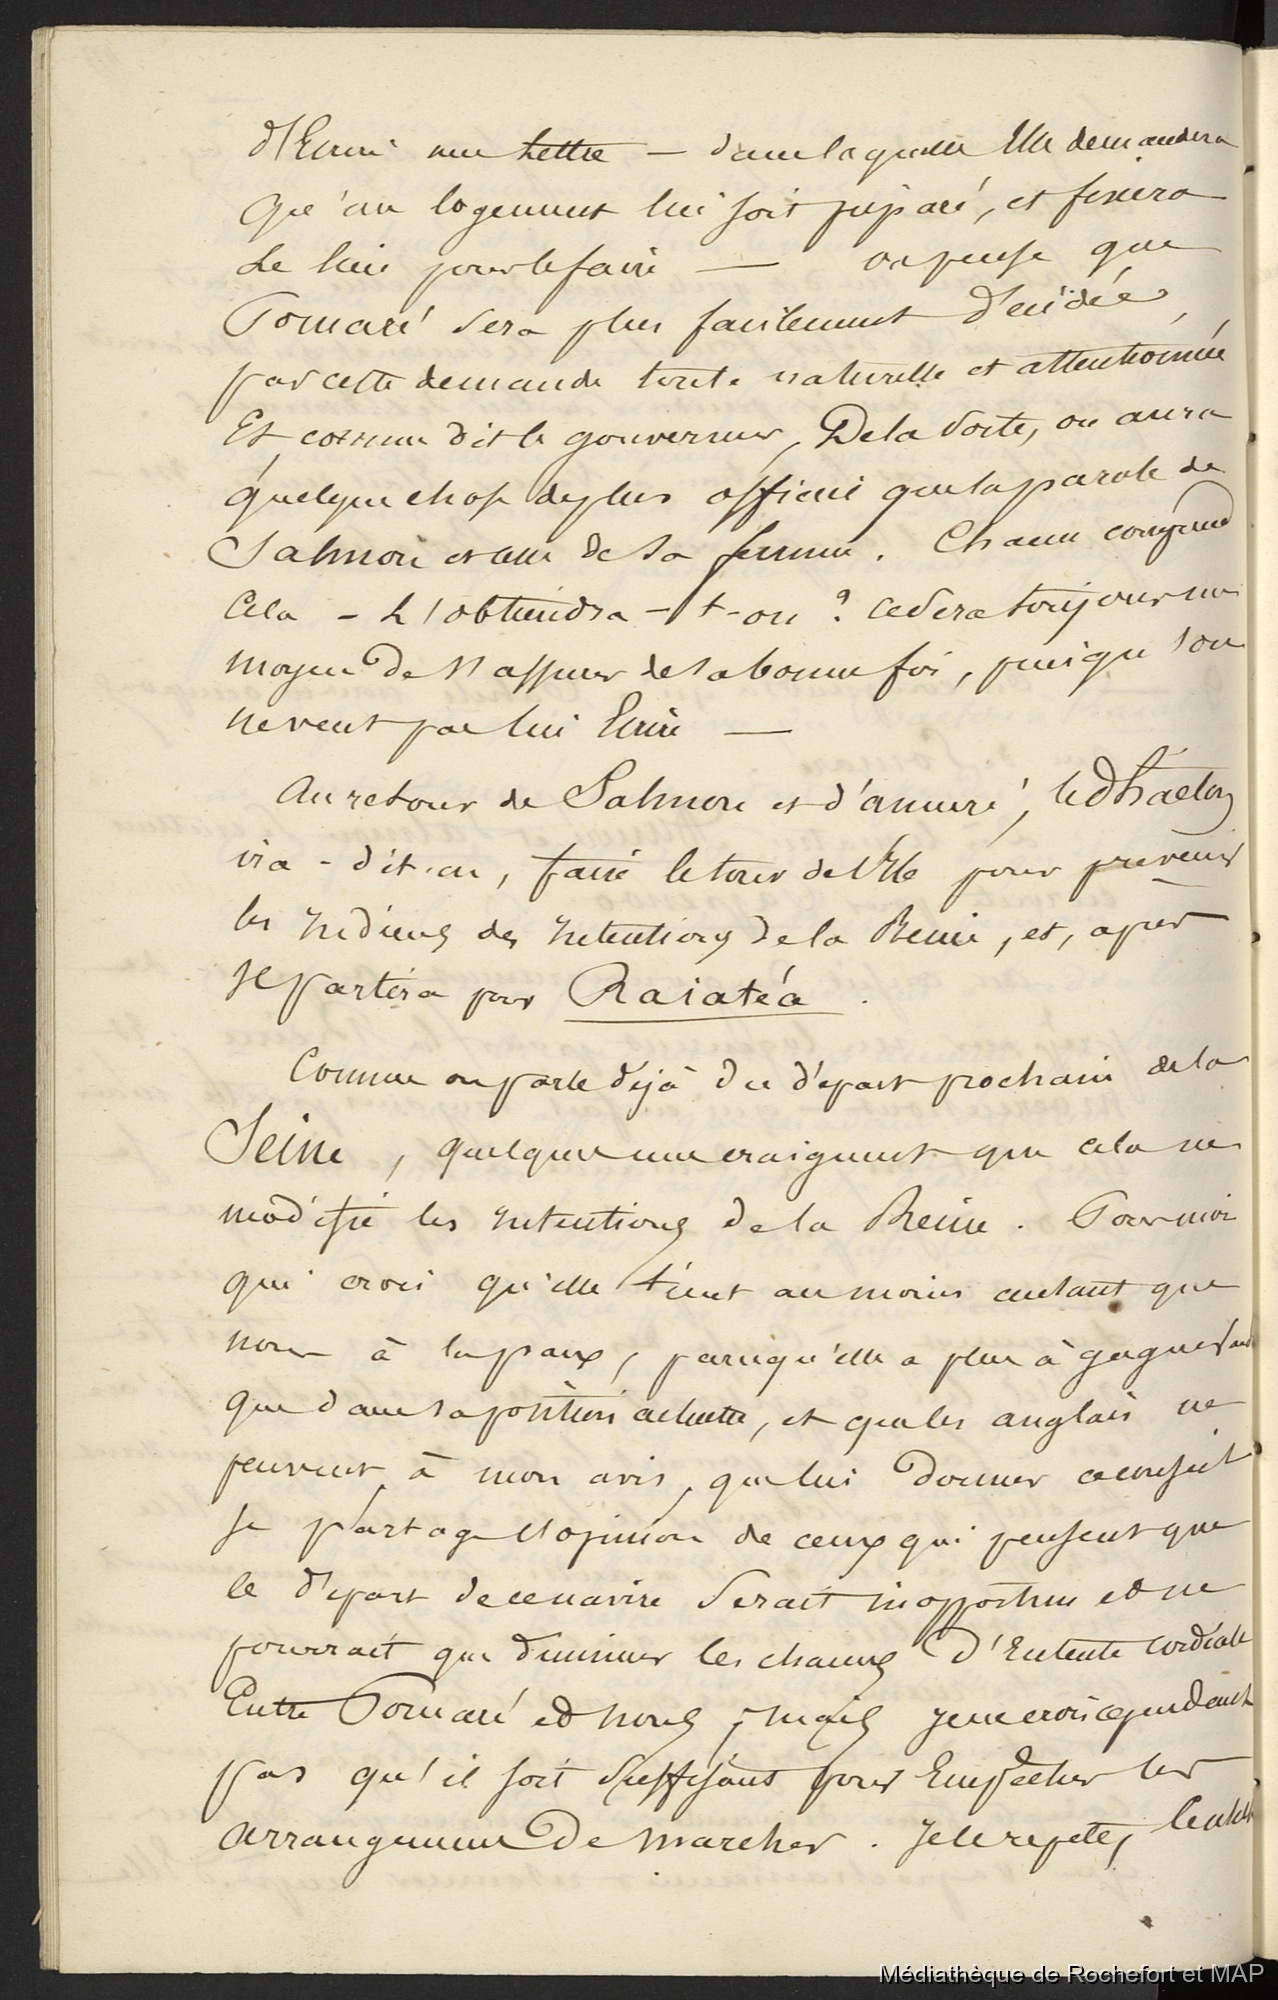 d'Ecrire une lettre — dans laquelle Elle demandera
que'un logement lui soit préparé, et fixera
le lieu pour le faire — on pense que
Pomaré sera plus facilement d'écidée,
par cette demande toute naturelle et attentionnée
Et, comme dit le gouverneur, De la sorte, on aura
quelque chose de plus officiel que la parole de
Salmon et celle de sa femme. Chacun comprend
Cela - L'obtiendra-t-on ? ce sera toujours un
moyen De s'assurer de sa bonne foi, puisqu'on
ne veut pas lui Ecrire —
Au retour de Salmon et d', le Phaeton
ira - dit-on, faire le tour de l'Ile pour prévenir
les Indiens des Intentions de la Reine, et, après
Il partira pour Raiatéa.
Comme on parle déjà du d'épart prochain de la
Seine, quelques uns craignent que cela ne
modifie les Intentions de la Reine. Pour moi
qui crois qu'elle tient au moins autant que
nous à la paix, parcequ'elle a plus à gagner
que dans sa position actuelle, et que les anglais ne
peuvent à mon avis, que lui donner ce conseil
je partage l'opinion de ceux qui pensent que
le d'épart de ce navire serait inopportun et ne
pourrait que diminuer les chances D'Entente cordiale
Entre Pomaré et nous ; mais je ne crois cependant
pas qu'il soit suffisant pour Empêcher les
arrangements De marcher. Je le repete,
Médiathèque de Rochefort et MAP